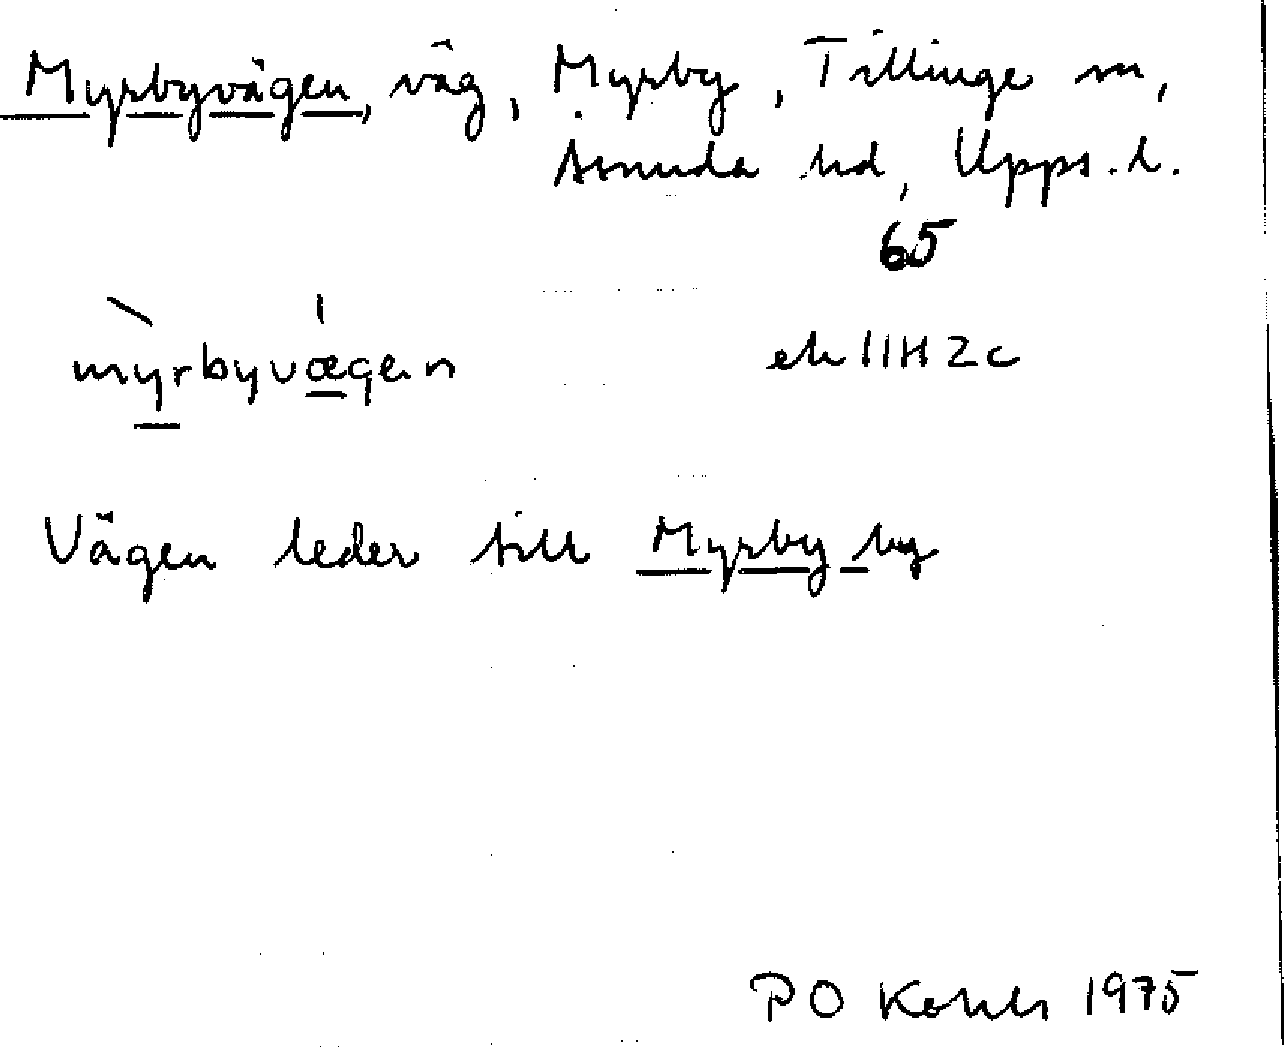 Myrbyvägen, väg, Myrby, Tillinge sn,
Åsunda hd, Upps. l.
65
myrbyvægen ek 11H2c
Vägen leder till Myrby by
P O 1975